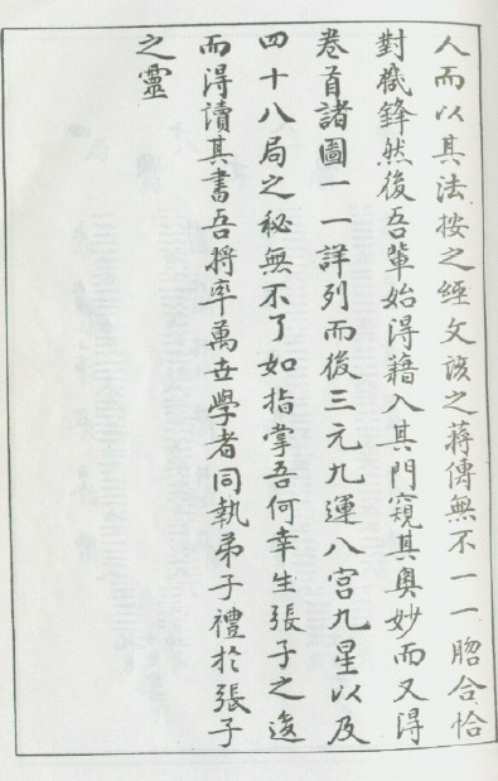 人而以其法按之經文該之蔣傳無不一一脗合恰
對機鋒然後吾輩始得藉入其門窺其奥妙而又得
卷首諸圖一一詳列而後三元九運八宫九星以及
四十八局之秘無不了如指掌吾何幸生張子之後
而得讀其書吾將率萬世學者同執弟子禮於張子
之靈